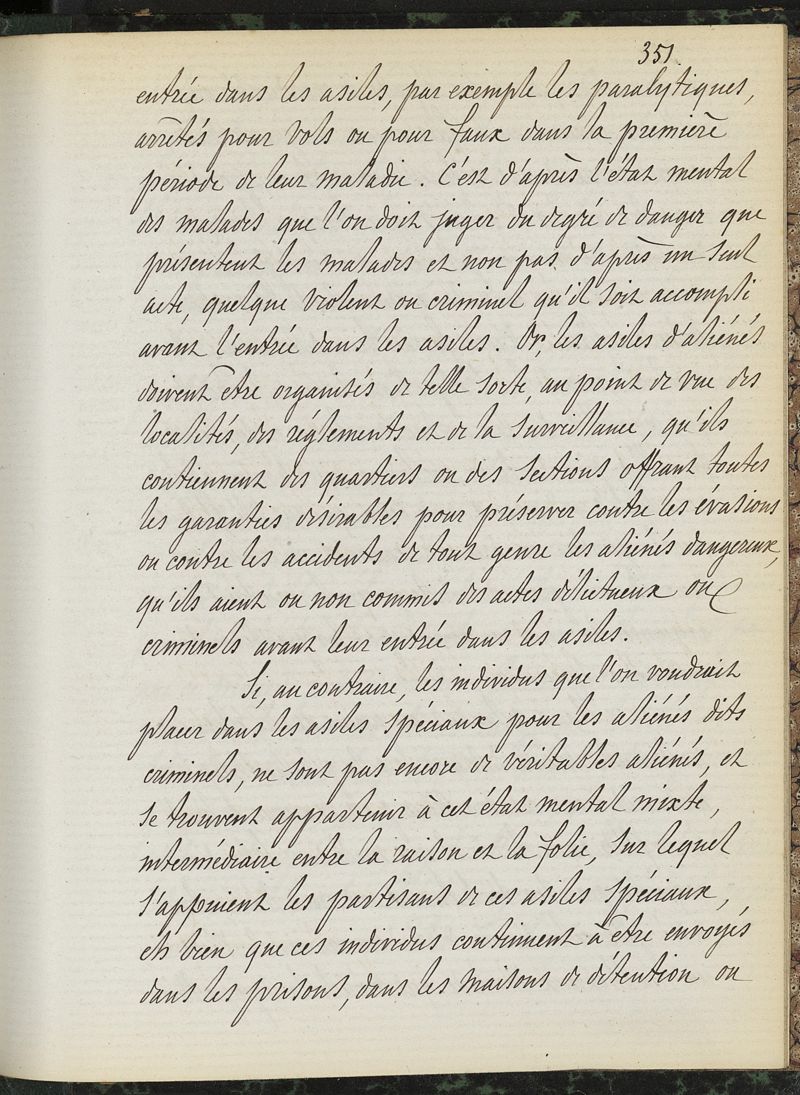 351.
entrée dans les asiles, par exemple les paralytiques,
arrêtés pour vols ou pour faux dans la première
période de leur maladie. C'est d'après l'état mental
des malades que l'on doit juger du degré de danger que
présentent les malades et non pas d'après un seul
acte, quelque violent ou criminel qu'il soit accompli
avant l'entrée dans les asiles. Or, les asiles d'aliénés
doivent être organisés de telle sorte, au point de vue des
localités, des réglements et de la surveillance, qu'ils
contiennent des quartiers ou des sections offrant toutes
les garanties désirables pour préserver contre les évasions
ou contre les accidents de tout genre les aliénés dangereux,
qu'ils aient ou non commis des actes délictueux ou
criminels avant leur entrée dans les asiles.
Si, au contraire, les individus que l'on voudrait
placer dans les asiles spéciaux pour les aliénés dits
criminels, ne sont pas encore de véritables aliénés, et
se trouvent appartenir à cet état mental mixte,
intermédiaire entre la raison et la folie, sur lequel
s'appuient les partisans de ces asiles spéciaux,
eh bien que ces individus continuent à être envoyés
dans les prisons, dans les maisons de détention ou